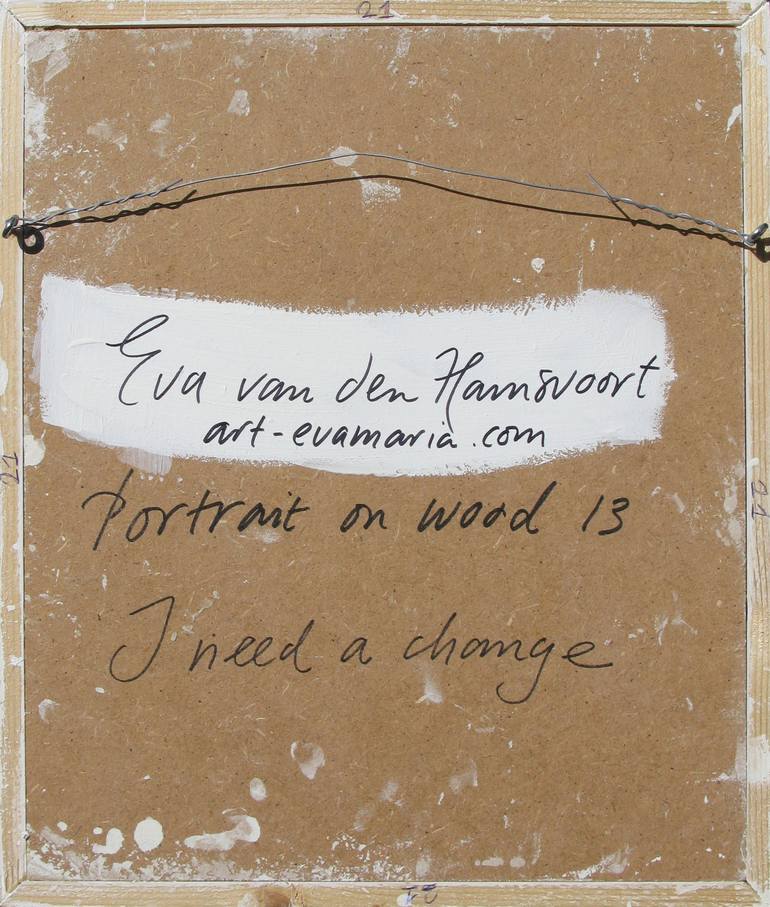 21
Eva van den Hamsvoort
art-evamaria.com
Portrait on wood 13
I need a change
21
21
21